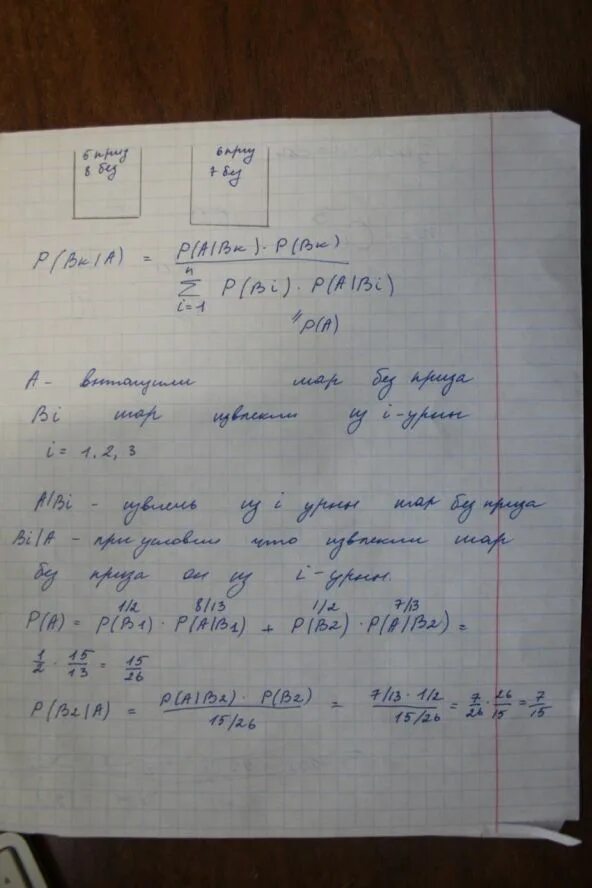 5 приз
8 без
6 приз
7 без
P(Bк/A) = P(A|Bк) · P(Bк) / n Σ i=1 P(Bi) · P(A|Bi)
" P(A)
A - вытащили шар без приза
Bi шар извлекли из i-урны
i = 1, 2, 3
A|Bi - извлечь из i урны шар без приза
Bi/A - при условии что извлекли шар
без приза он из i-урны.
1/2 8/13 1/2 7/13
P(A) = P(B1) · P(A|B1) + P(B2) · P(A|B2) =
1/2 · 15/13 = 15/26
P(B2/A) = P(A|B2) · P(B2) / 15/26 = 7/13 · 1/2 / 15/26 = 7/26 · 26/15 = 7/15